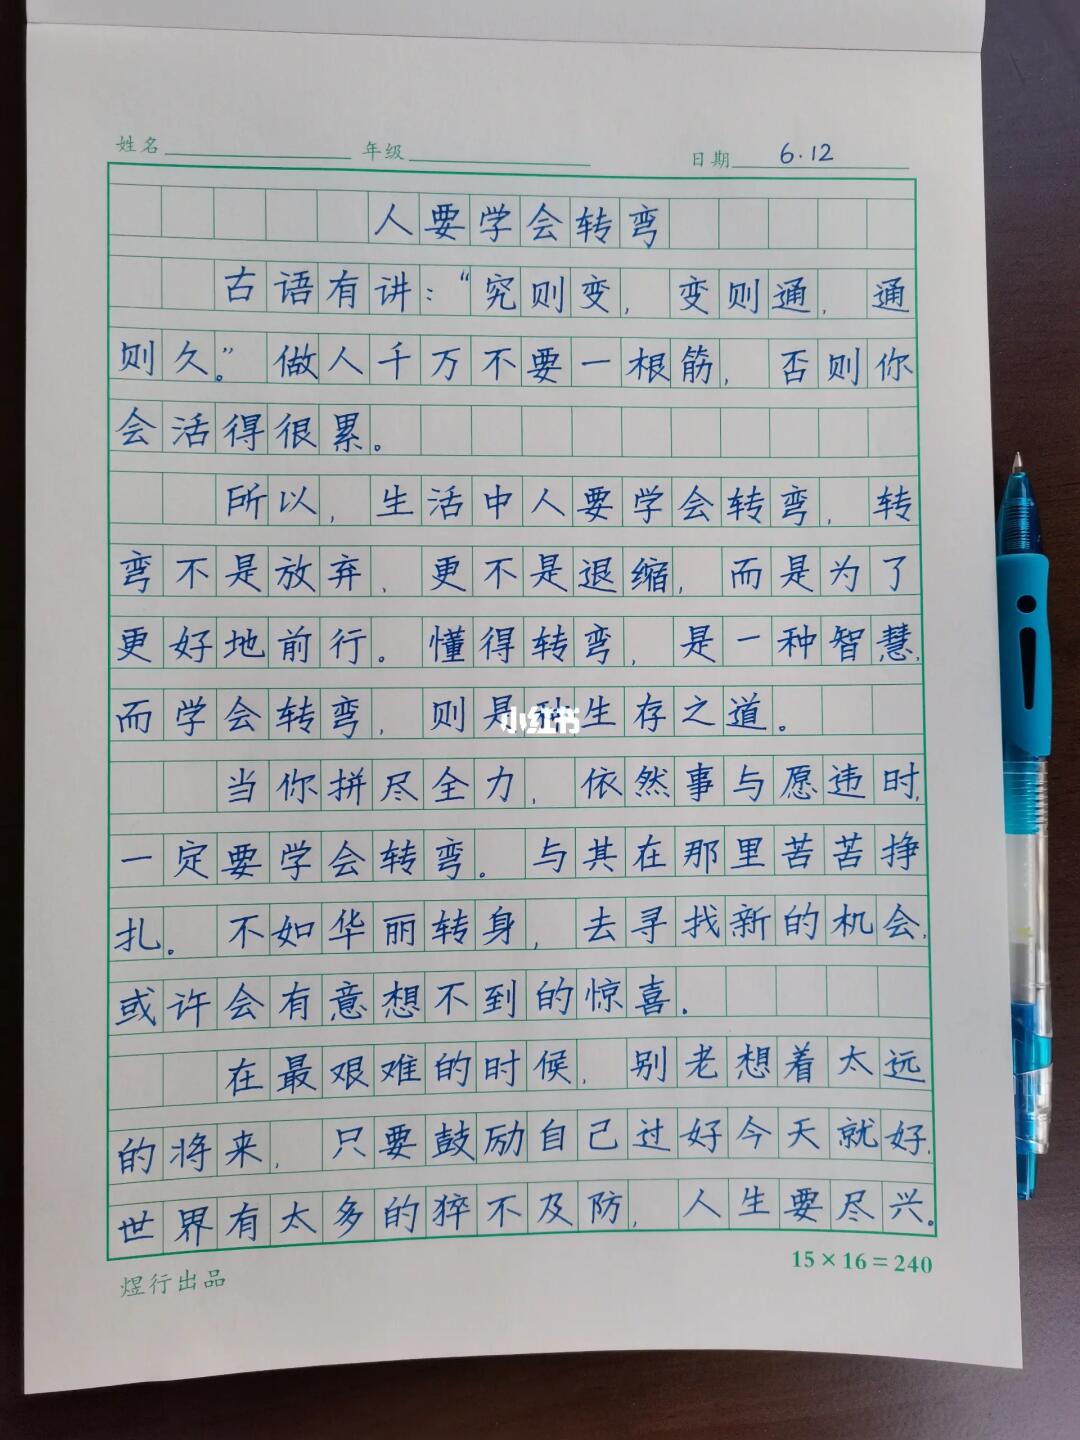 姓名 年级 日期 6.12
人要学会转弯
古语有讲：“究则变，变则通，通
则久。”做人千万不要一根筋，否则你
会活得很累。
所以，生活中人要学会转弯，转
弯不是放弃，更不是退缩，而是为了
更好地前行。懂得转弯，是一种智慧，
而学会转弯，则是种生存之道。
当你拼尽全力，依然事与愿违时，
一定要学会转弯。与其在那里苦苦挣
扎。不如华丽转身，去寻找新的机会，
或许会有意想不到的惊喜．
在最艰难的时候，别老想着太远
的将来，只要鼓励自己过好今天就好，
世界有太多的猝不及防，人生要尽兴。
煜行出品 15×16=240
小红书